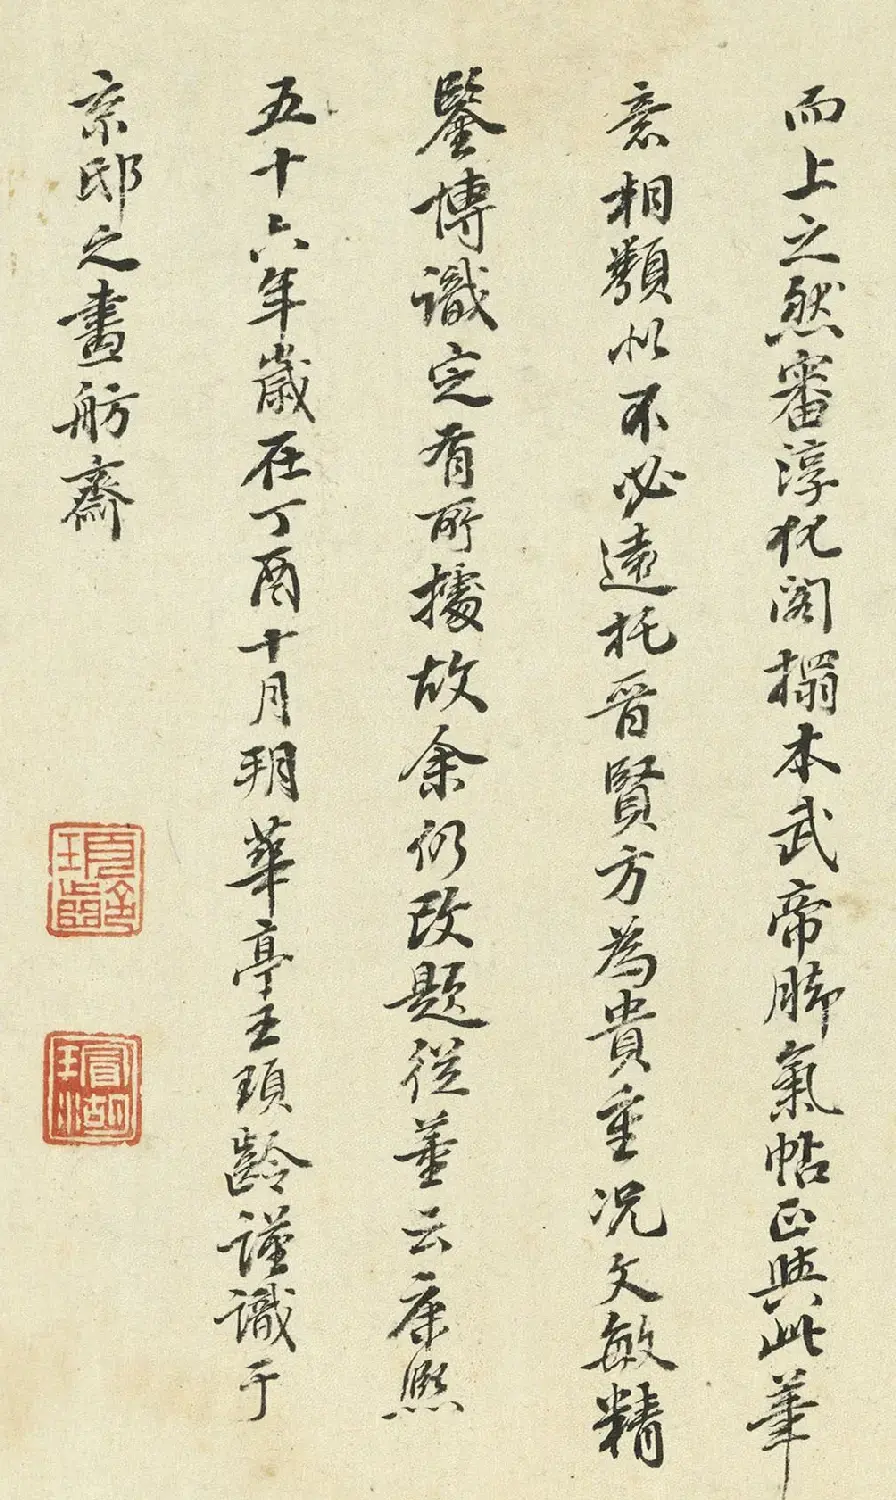 而上之然審淳化閣搨本武帝脚氣帖正與此筆
意相類似不必遠托晉賢方為貴重况文敏精
鑒博識定有所據故余仍改題從董云康熙
五十六年歲在丁酉十月朔華亭王頊齡謹識于
京邸之畫舫齋
頊齡
瑁湖